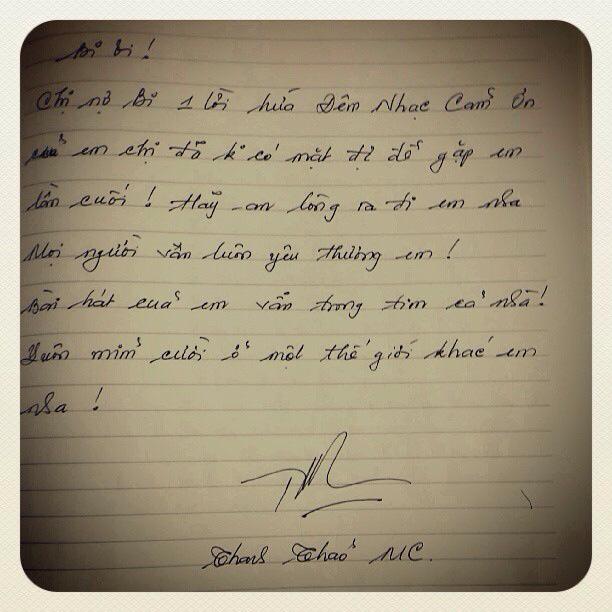 Bi Bi !
Chị nợ Bi 1 lời hứa Đêm Nhạc Cảm Ơn
của em chị đã k có mặt để gặp em
lần cuối ! Hãy an lòng ra đi em nha
Mọi người vẫn luôn yêu thương em !
Bài hát của em vẫn trong tim cả nhà !
Luôn mỉm cười ở một thế giới khác em
nha !
Thanh Thảo MC.